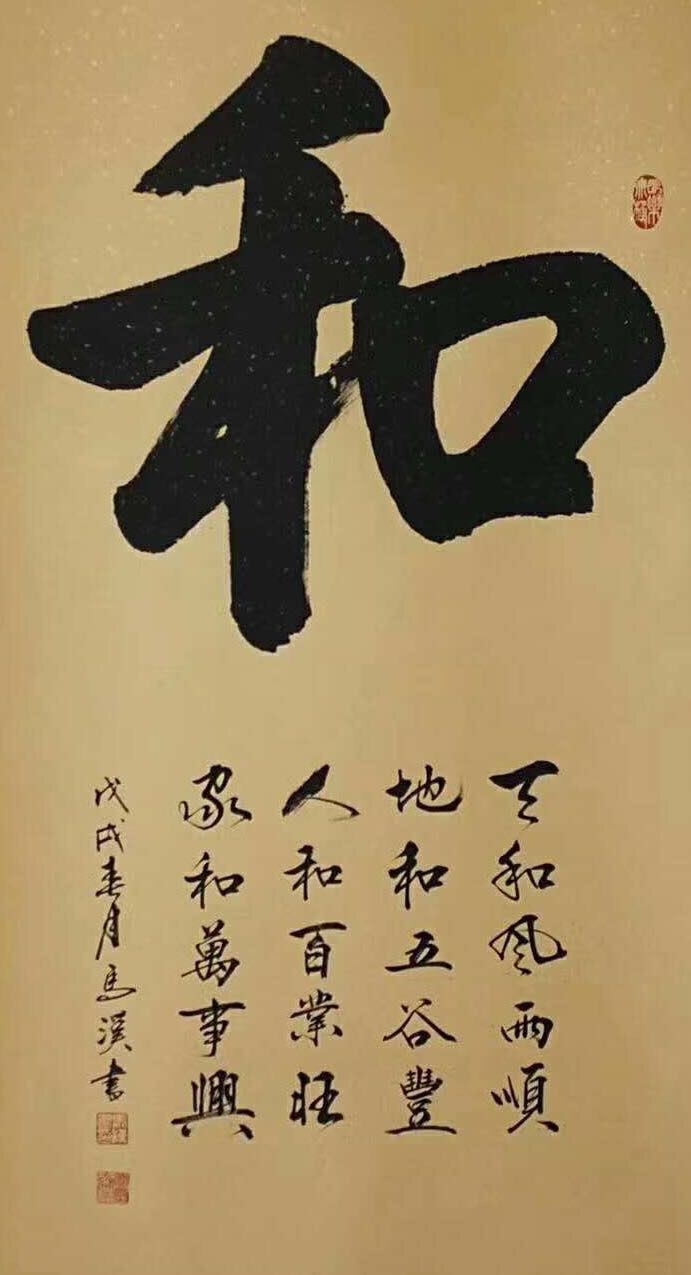 和
天和風雨順
地和五谷豐
人和百業旺
家和萬事興
戊戌春月馬漢書